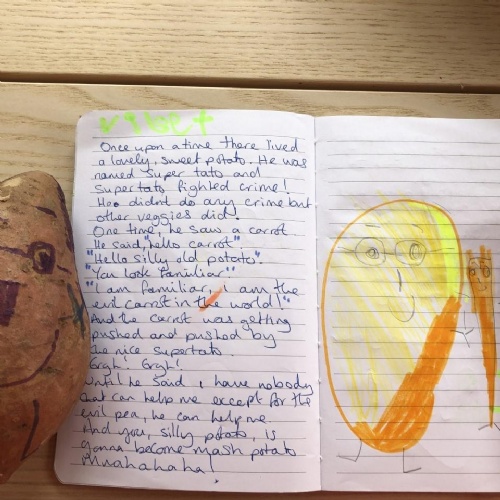 Once upon a time there lived
a lovely, sweet potato. He was
named Super tato and
Supertato fighted crime!
He didn't do any crime but
other veggies did.
One time, he saw a carrot
He said, "hello carrot".
"Hello silly old potato".
"You look familiar"
"I am familiar, I am the
evil carrot in the world!"
And the carrot was getting
pushed and pushed by
the nice supertato.
Grgh! Grgh!
Until he said, I have nobody
that can help me except for the
evil pea, he can help me.
And you, silly potato, is
gonna become mash potato
Mwahahaha!